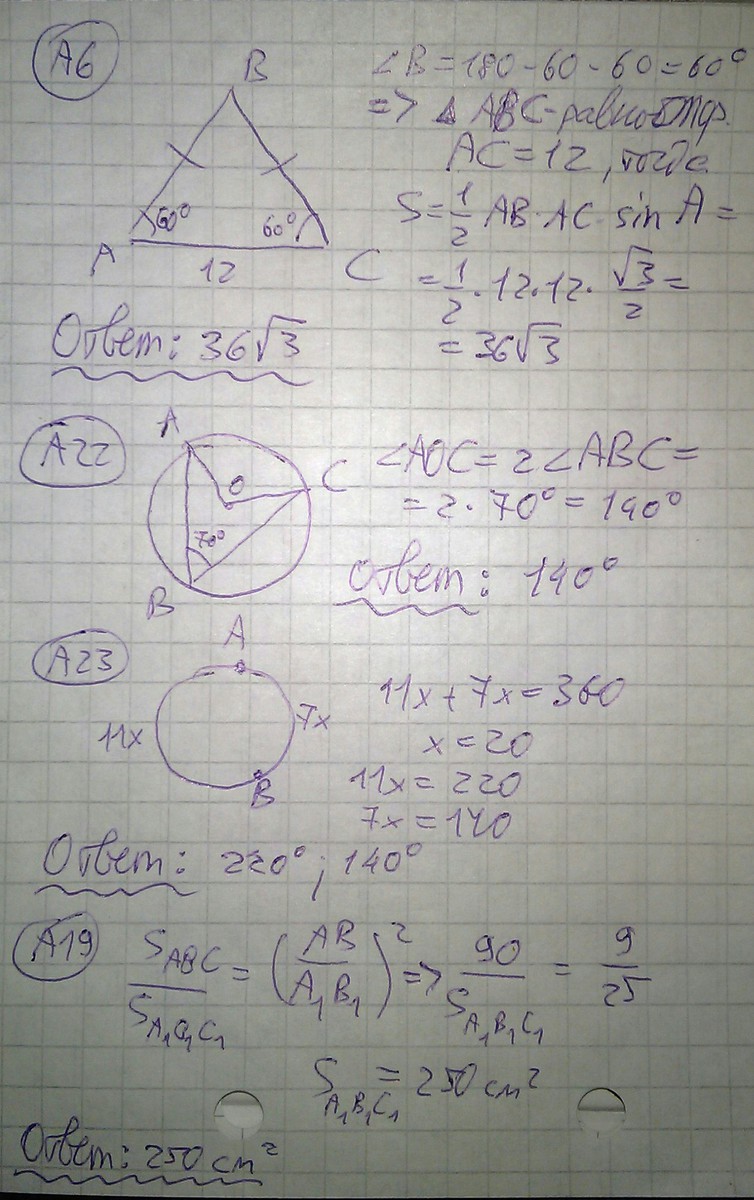 A6
B
60°
60°
A
12
C
∠B = 180 - 60 - 60 = 60°
=> △ ABC - равностор.
AC = 12, тогда
S = 1/2 AB · AC · sin A =
= 1/2 · 12 · 12 · √3/2 =
= 36√3
Ответ: 36√3
A22
A
O
C
70°
B
∠AOC = 2∠ABC =
= 2 · 70° = 140°
Ответ: 140°
A23
A
11x
7x
B
11x + 7x = 360
x = 20
11x = 220
7x = 140
Ответ: 220°; 140°
A19
S_ABC / S_A₁C₁C₁ = (AB / A₁B₁)² => 90 / S_A₁B₁C₁ = 9/25
S_A₁B₁C₁ = 250 см²
Ответ: 250 см²